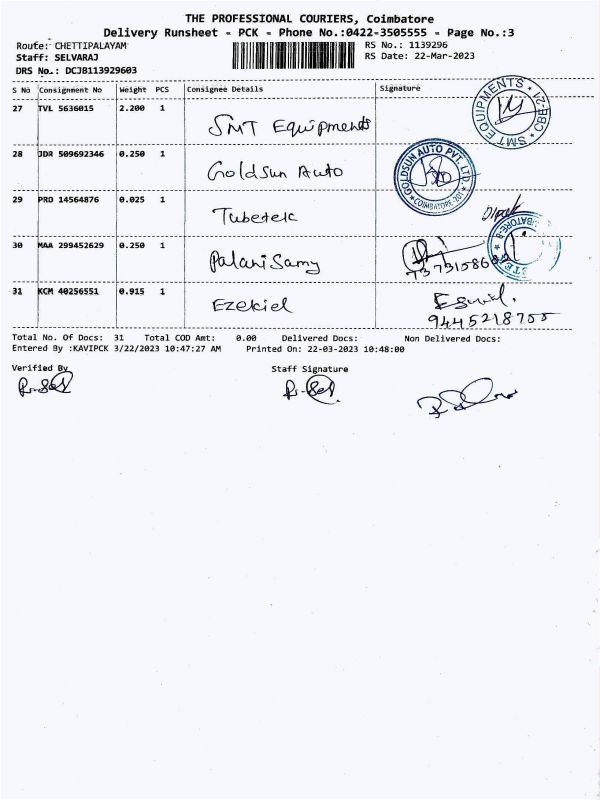 THE PROFESSIONAL COURIERS, Coimbatore
Delivery Runsheet - PCK - Phone No.:0422-3505555 - Page No.:3
Route: CHETTIPALAYAM RS No.: 1139296
Staff: SELVARAJ RS Date: 22-Mar-2023
DRS No.: DCJB113929603
S No Consignment No Weight PCS Consignee Details Signature
27 TVL 5636015 2.200 1
SMT Equipments
SMT EQUIPMENTS * CBE-21 *
28 JDR 509692346 0.250 1
Goldsun Auto
GOLDSUN AUTO PVT. LTD.
* COIMBATORE-201 *
29 PRO 14564876 0.025 1
Tubetek
30 MAA 299452629 0.250 1
PalaniSamy
31 KCM 40256551 0.915 1
Ezekiel
9445218755
Total No. Of Docs: 31 Total COD Amt: 0.00 Delivered Docs: Non Delivered Docs:
Entered By :KAVIPCK 3/22/2023 10:47:27 AM Printed On: 22-03-2023 10:48:00
Verified By Staff Signature